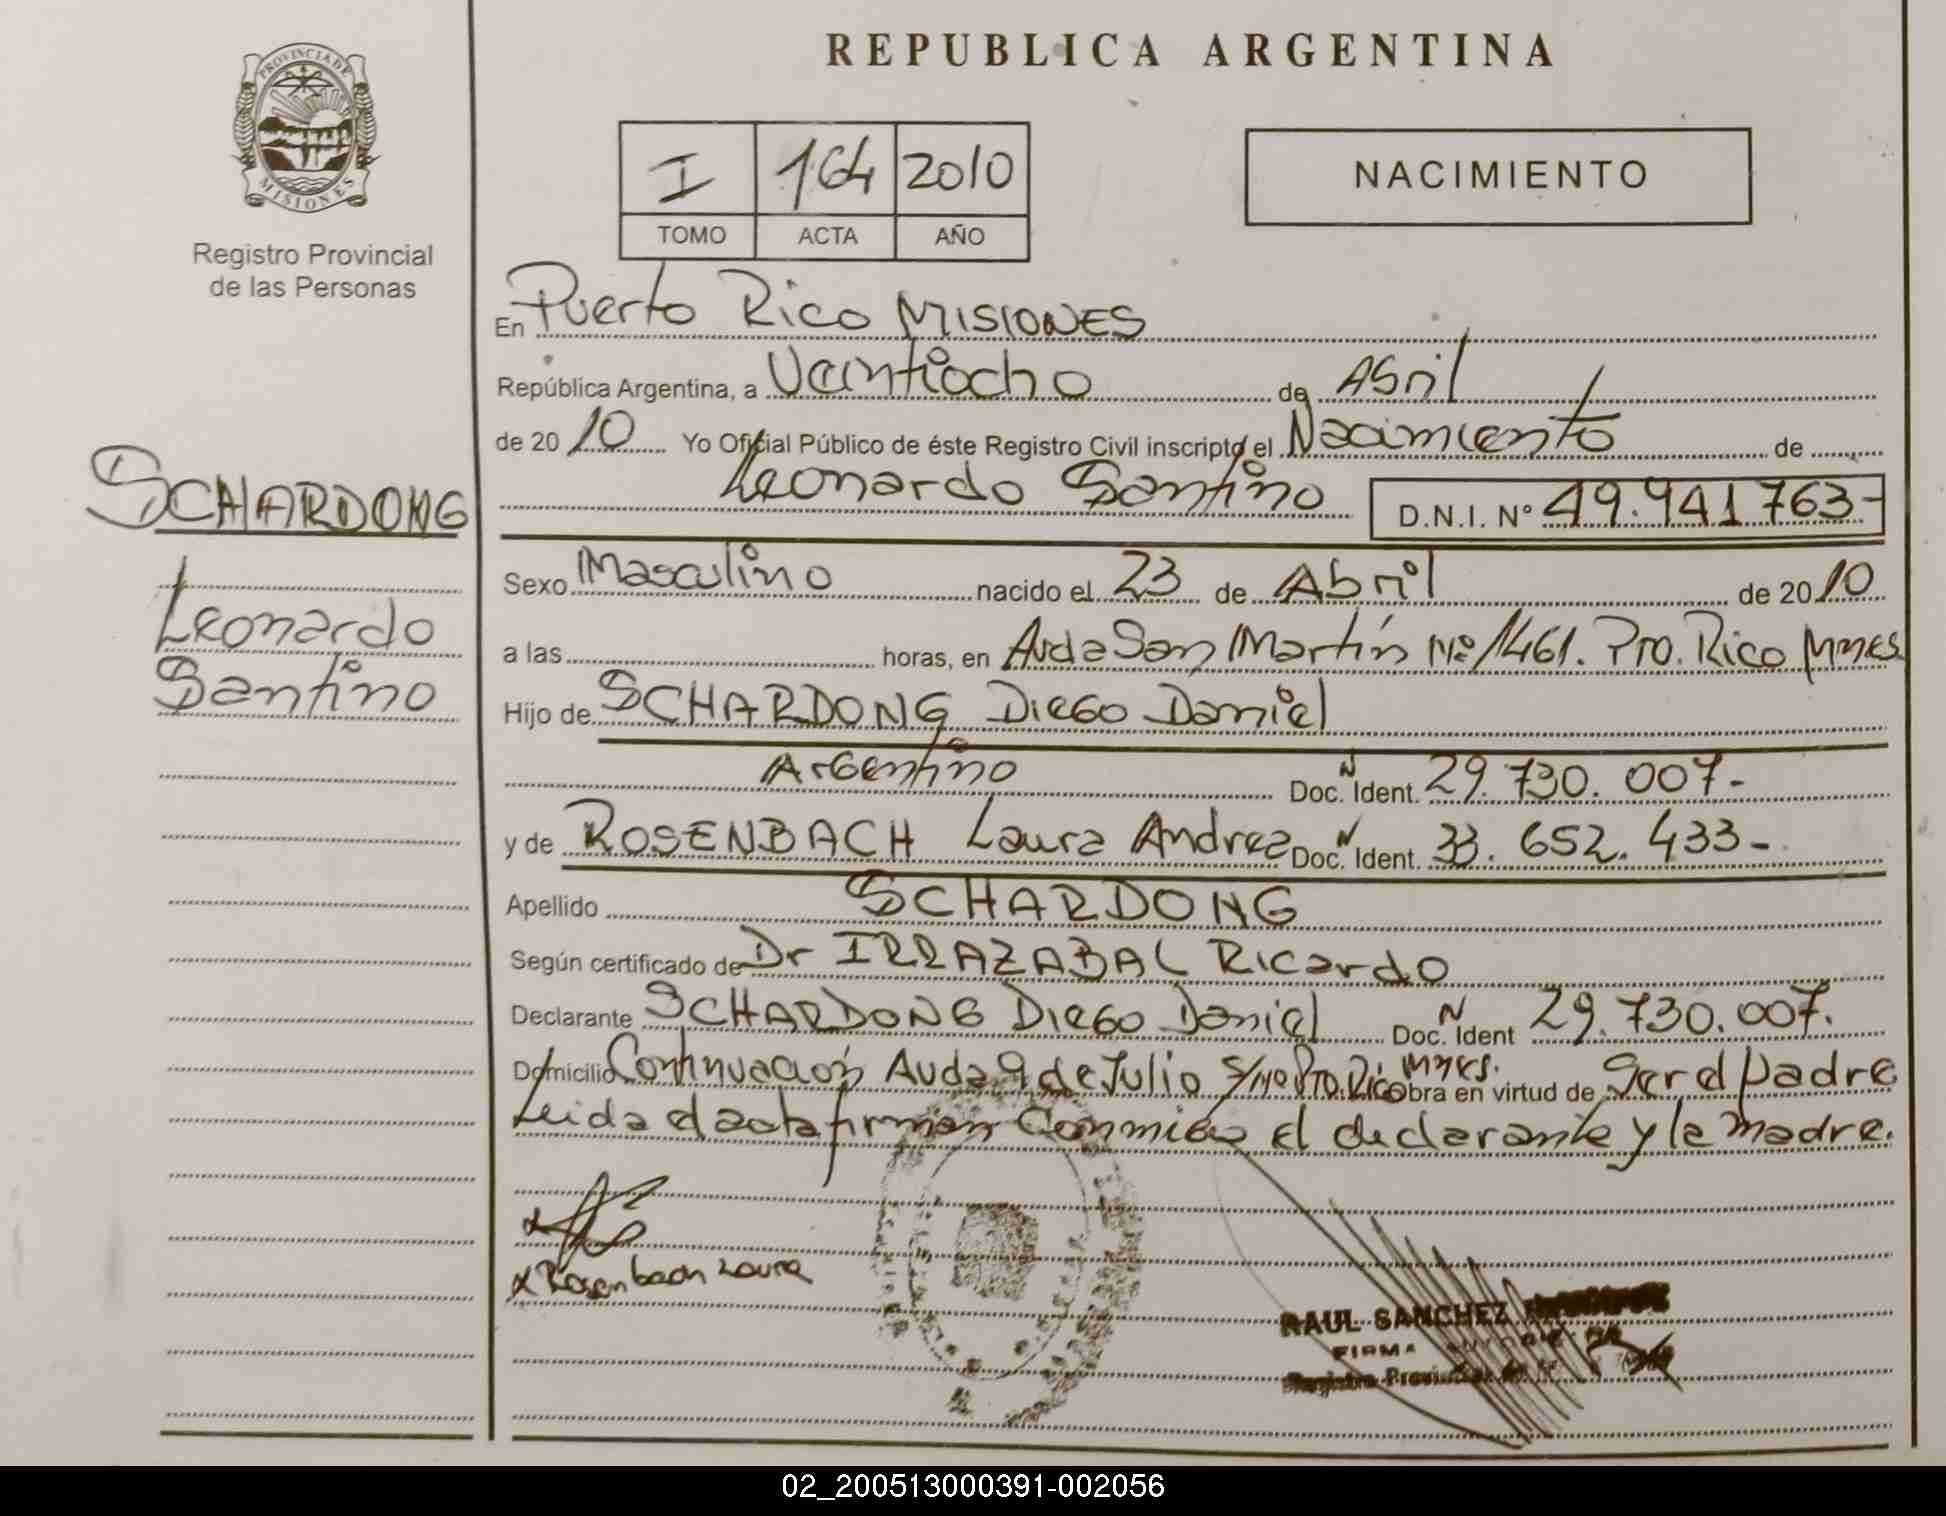 REPUBLICA ARGENTINA
PROVINCIA DE MISIONES
Registro Provincial
de las Personas
I 164 2010
TOMO ACTA AÑO
NACIMIENTO
En Puerto Rico MISIONES
República Argentina, a Veintiocho de Abril
de 2010 Yo Oficial Público de éste Registro Civil inscripto el Nacimiento de
Leonardo Santino D.N.I. N° 49.941763-
SCHARDONG
Leonardo
Santino
Sexo Masculino nacido el 23 de Abril de 2010
a las horas, en Avda San Martín Nº 1461. Pto. Rico Mnes
Hijo de SCHARDONG Diego Daniel
Argentino Doc. N Ident. 29.730.007-
y de ROSENBACH Laura Andrea Doc. N Ident. 33.652.433-
Apellido SCHARDONG
Según certificado de Dr IRRAZABAL Ricardo
Declarante SCHARDONG Diego Daniel Doc. N Ident 29.730.007.
Domicilio Continuación Avda 9 de Julio S/Nº Pto. Rico Mnes. Obra en virtud de Ser el padre
Leida el acta firman Conmigo el declarante y la madre.
x Rosenbach Laura
RAUL SANCHEZ
FIRMA
Registro Provincial de
02_200513000391-002056